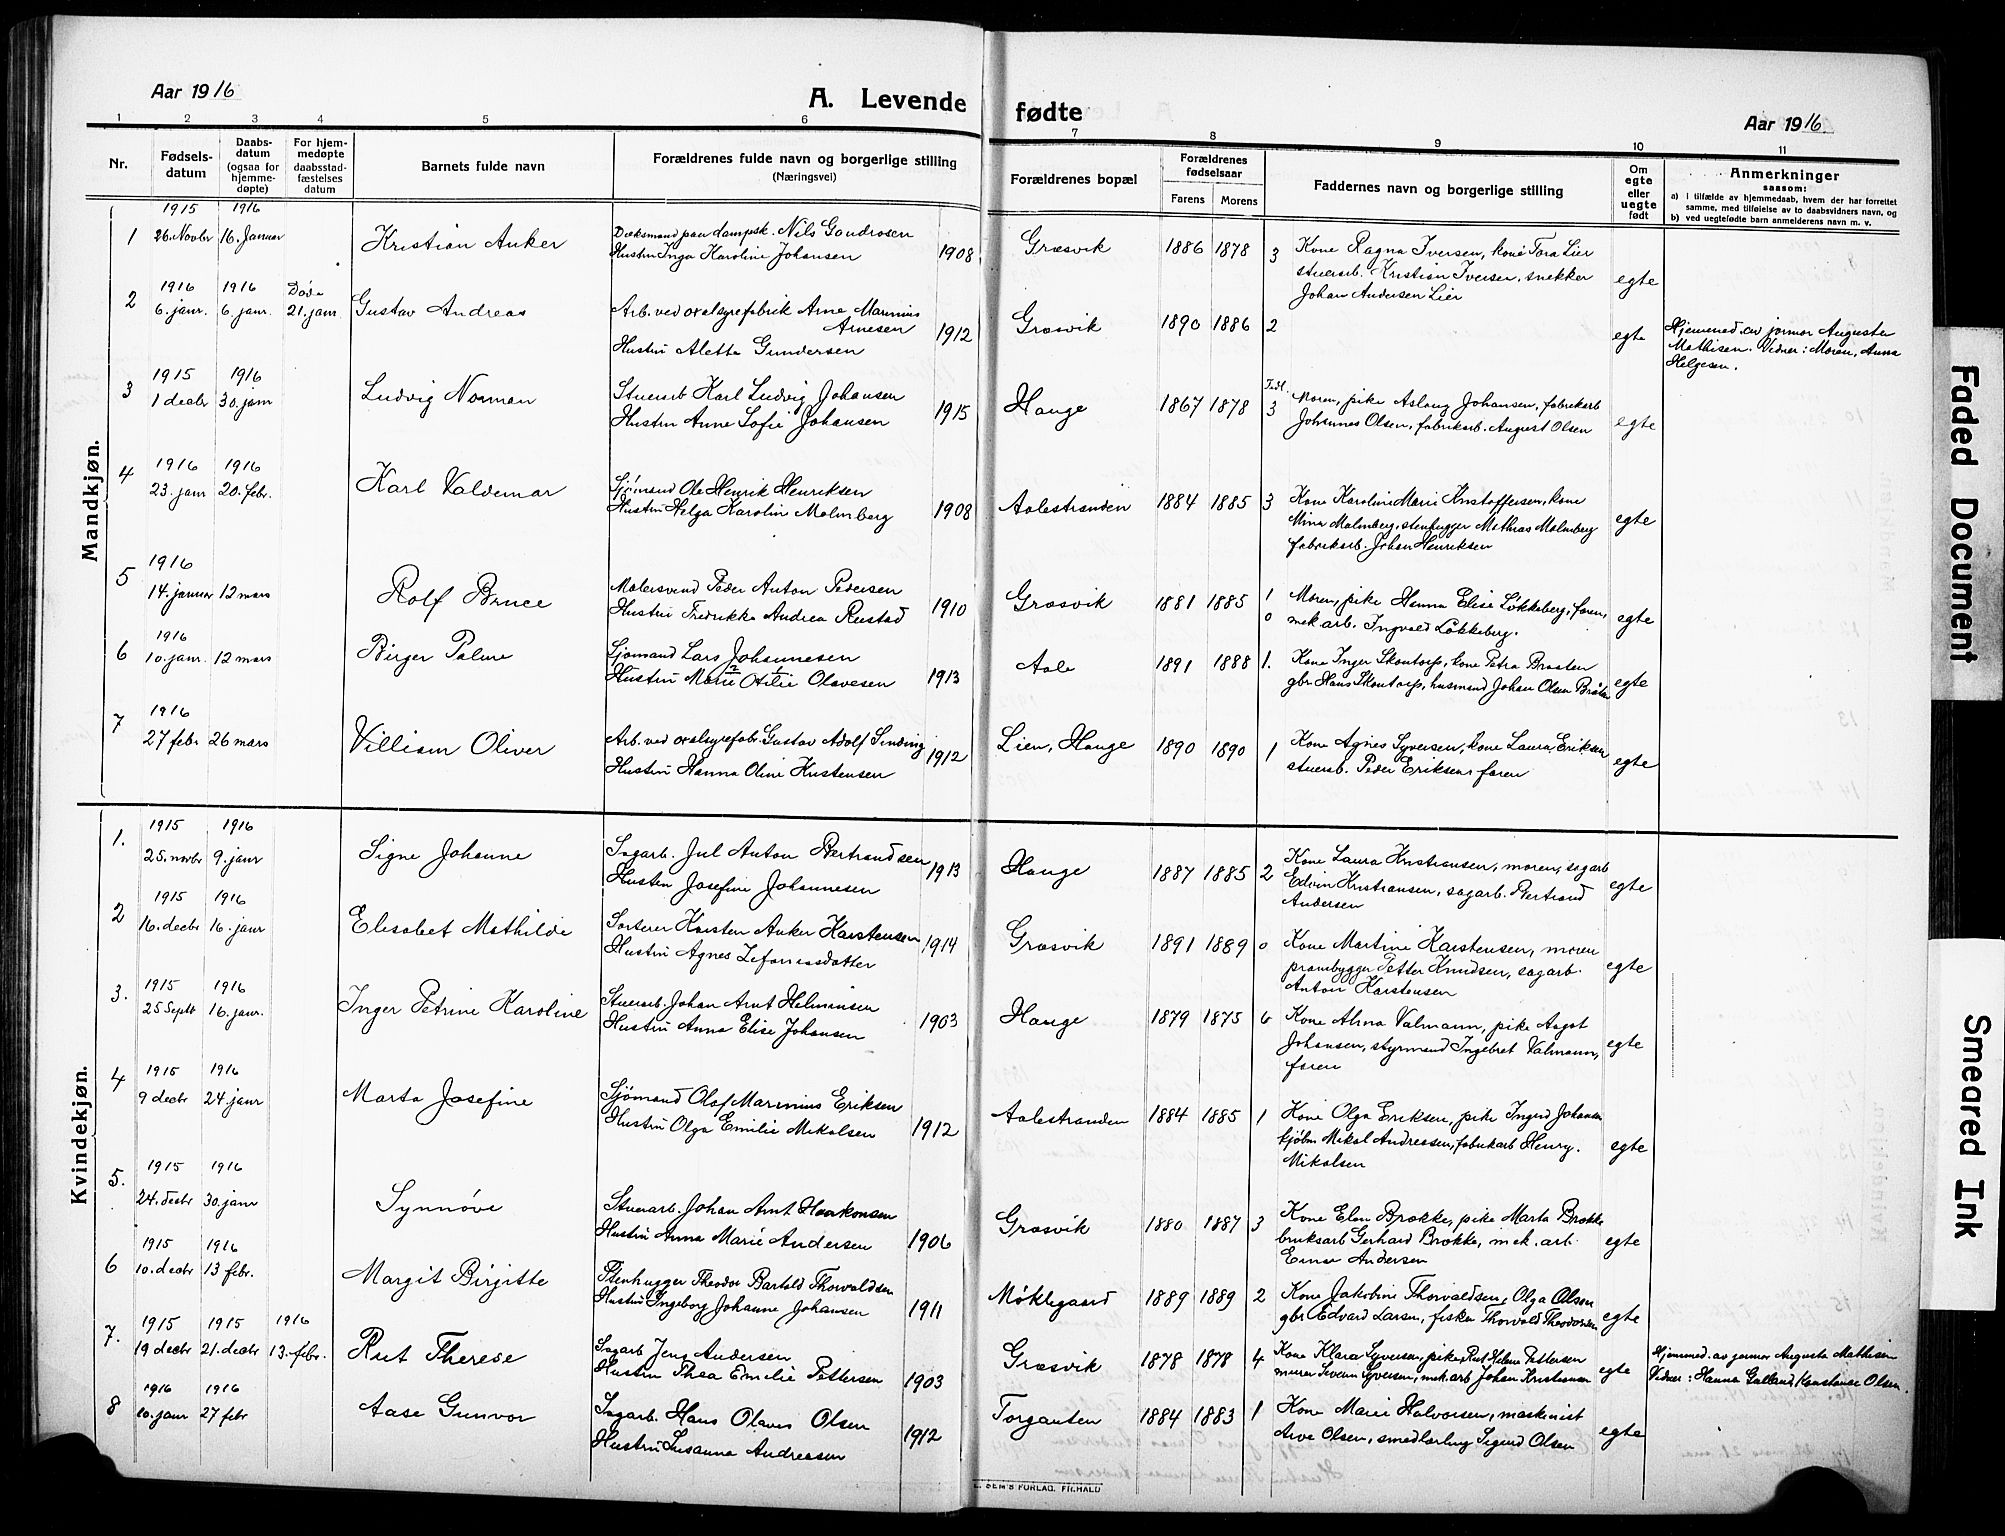 Aar 1916
A. Levende fødte
Aar 1916.
1 2 3 4 5 6 7 8 9 10 11
Nr.
Fødsels-
datum
Daabs-
datum
(ogsaa for
hjemme-
døpte)
For hjem-
medøpte
daabsstad-
fæstelses
datum
Barnets fulde navn
Forældrenes fulde navn og borgerlige stilling
(Næringsvei)
Forældrenes bopæl
Forældrenes
fødselsaar
Farens Morens
Faddernes navn og borgerlige stilling
Om
egte
eller
uegte
født
Anmerkninger
saasom:
a) i tilfælde av hjemmedaab, hvem der har forrettet
samme, med tilføielse av to daabsvidners navn, og
b) ved uegtefødte barn anmelderens navn m. v.
Mandkjøn.
1915 1916
1 26. Novbr 16. Januar Kristian Anker
Dæksmand paa dampsk. Nils Gundrosen
Hustru Inga Karoline Johansen 1908
Græsvik 1886 1878 3
Kone Ragna Iversen, kone Tora Lier
stuerarb. Kristian Iversen, snekker
Johan Andersen Lier
egte
1916 1916 Død
2 6. janr. 6. janr. 21. janr. Gustav Andreas
Arb. ved oxalsyrefabrik Arne Marinius
Arnesen
Hustru Aletta Gundersen 1912
Græsvik 1890 1886 2
egte
Hjemmed. av jormor Augusta
Mathisen. Vidner: Moren, Anna
Helgesen.
1915 1916
3 1 decbr 30. jan Ludvig Norman
Stuerarb Karl Ludvig Johansen
Hustru Anne Sofie Johansen 1915
Hauge 1867 1878 3
Moren, pike Aslaug Johansen, fabrikarb
Johannes Olsen, fabrikarb. August Olsen
egte
1916 1916
4 23. janr 20. febr. Karl Valdemar
Sjömand Ole Henrik Henriksen
Hustru Helga Karolin Malmberg 1908
Aalestranden 1884 1885 3
Kone Karoline Marie Kristoffersen, kone
Mina Malmberg, stenhugger Mathias Malmberg
fabrikarb. Johan Henriksen
egte
1916
5 14. januar 12 mars Rolf Bruce
Malersvend Peder Anton Pedersen
Hustru Fredrikke Andrea Rustad 1910
Græsvik 1881 1885 1
0
Moren, pike Hanna Elise Løkkeberg, faren,
mek. arb. Ingvald Løkkeberg.
egte
1916
6 10. janr. 12 mars Birger Palme
Sjømand Lars Johannesen
Hustru Marie Otilie Olavesen 1913
Aale 1891 1888 1.
Kone Inger Skontorp, kone Petra Braaten
gbr Hans Skontorp, husmand Johan Olsen Bråten
egte
1916
7 27 febr 26 mars Villiam Oliver
Arb. ved oxalsyrefabr. Gustav Adolf Sinding
Hustru Hanna Oline Kristensen 1912
Lien, Hauge 1890 1890 1
Kone Agnes Syversen, kone Laura Eriksen
stuerarb. Peder Eriksen, faren
egte
Kvindekjøn.
1915 1916
1. 25. novbr 9. janr Signe Johanne
Sagarb. Jul Anton Bertrandsen
Hustru Josefine Johannesen 1913
Hauge 1887 1885 2
Kone Laura Kristiansen, moren, sagarb
Edvin Kristiansen, sagarb. Bertrand
Andersen
egte
1915 1916
2 16. decbr 16. janr Elisabet Mathilde
Sorterer Karsten Anker Karstensen
Hustru Agnes Zefaniasdatter 1914
Græsvik 1891 1889 0
Kone Martine Karstensen, moren
prambygger Petter Knudsen, sagarb.
Anton Karstensen
egte
1915 1916
3. 25 Septr 16. janr. Inger Petrine Karoline
Stuerarb. Johan Arnt Helminsen
Hustru Anna Elise Johansen 1903
Hauge 1879 1875 6
Kone Alma Valmann, pike Aagot
Johansen, styrmand Ingebret Valmann,
faren
egte
1915 1916
4 9 decbr 24. janr Marta Josefine
Sjömand Olaf Marinius Eriksen
Hustru Olga Emilie Mikalsen 1912
Aalestranden 1884 1885 1
Kone Olga Eriksen, pike Ingrid Johansen
kjøbm Mikal Andreasen, fabrikarb Henry.
Mikalsen
egte
1915 1916
5. 24. decbr 30. janr Synnöve
Stuerarb. Johan Arnt Haakonsen
Hustru Anna Marie Andersen 1906
Græsvik 1880 1887 3
Kone Elen Brække, pike Marta Brække
bruksarb Gerhard Brække, mek. arb.
Einar Andersen
egte
1915 1916
6 10. decbr 13 febr. Margit Birgitte
Stenhugger Theodor Bartold Thorvaldsen
Hustru Ingeborg Johanne Johansen 1911
Møklegaard 1889 1889 2
Kone Jakobine Thorvaldsen, Olga Olsen
gbr Edvard Larsen, fisker Thorvald Theodorsen
egte
1915 1915 1916
7. 19 decbr 21. decbr 13. febr. Rut Therese
Sagarb Jens Andersen
Hustru Thea Emilie Pettersen 1903
Græsvik 1878 1878 4
Kone Klara Syversen, pike Rut Helene Pettersen
murer Severin Syversen, mek. arb Johan Kristiansen
egte
Hjemmed. av jormor Augusta Mathisen
Vidner: Hanna Galland, Konstanse Olsen.
1916 1916
8 10. janr 27 febr Aase Gunvor
Sagarb. Hans Olaves Olsen
Hustru Susanna Andreasen 1912
Torgauten 1884 1883 1
Kone Marie Halvorsen, maskinist
Arve Olsen, smedlærling Sigurd Olsen
egte
SEM'S FORLAG, FR.HALD
Faded Document
Smeared Ink